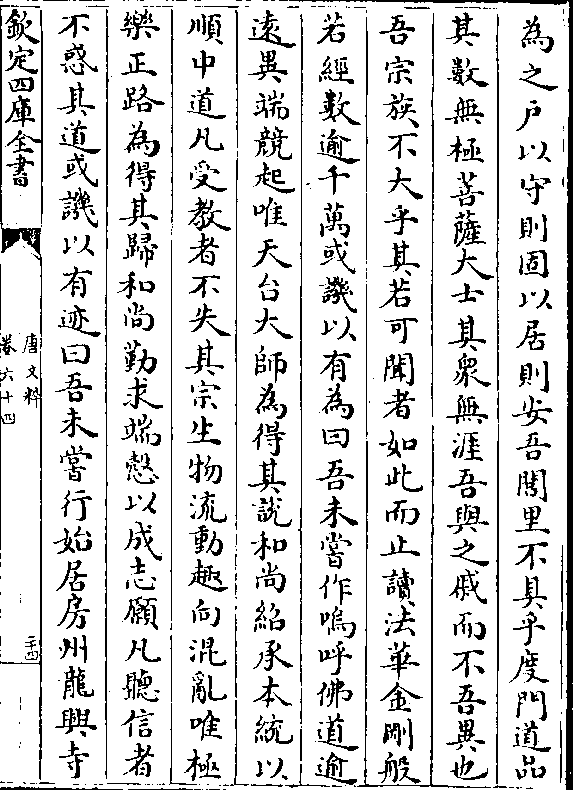 為之戸以守則固以居則安吾閭里不具乎度門道品
其數無極菩薩大士其衆無涯吾與之戚而不吾異也
吾宗族不大乎其若可聞者如此而止讀法華金剛般
若經數逾千萬或譏以有為曰吾未嘗作嗚呼佛道逾
遠異端競起唯天台大師為得其說和尚紹承本統以
順中道凡受教者不失其宗生物流動趣向混亂唯極
樂正路為得其歸和尚勤求端慤以成志願凡聽信者
不惑其道或譏以有迹曰吾未嘗行始居房州龍興寺
欽定四庫全書
唐文粹
卷六十四
二十四